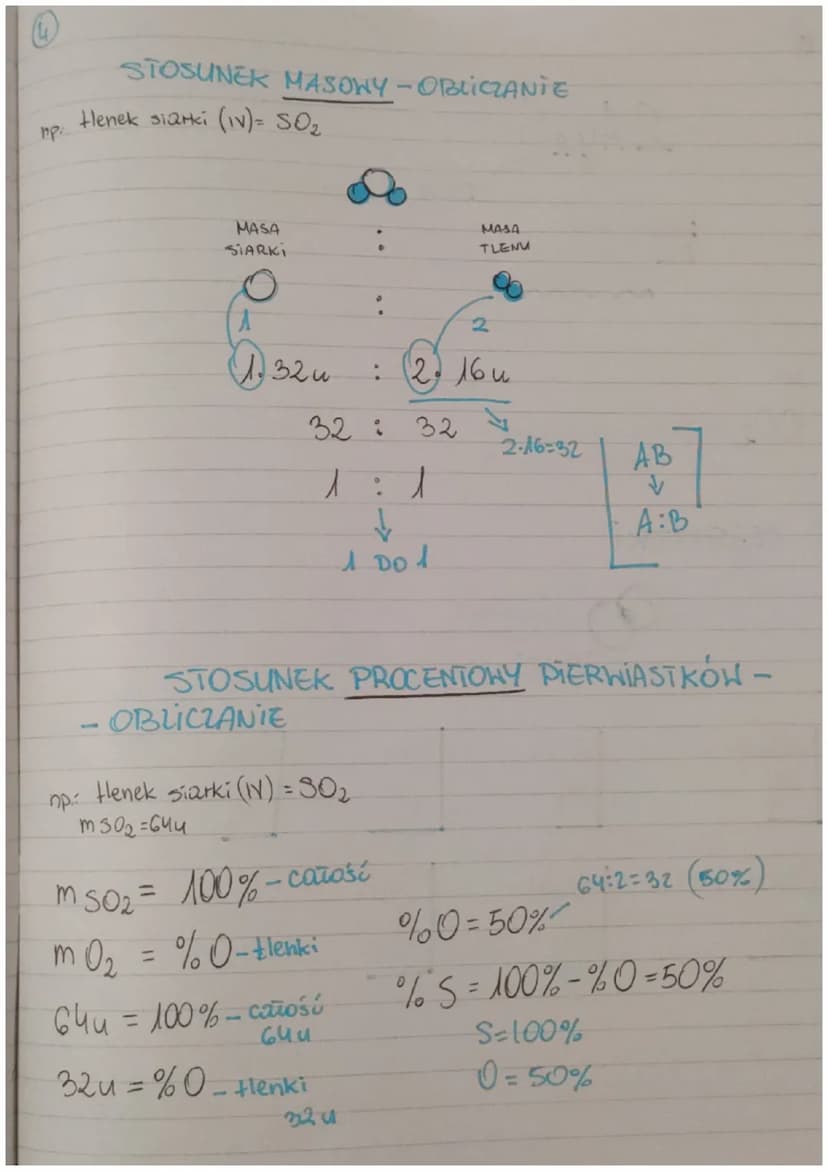 4
STOSUNEK MASOWY - OBLICZANIE
np. tlenek siarki (IV) = SO₂
MASA SIARKI : MASA TLENU
:
1 2
1. 32u : 2. 16u
32 : 32
2·16=32
1 : 1
1 DO 1
AB
A:B
STOSUNEK PROCENTOWY PIERWIASTKÓW -
- OBLICZANIE
np.: tlenek siarki (IV) = SO₂
m SO₂ = 64u
m SO₂ = 100% - całość
64:2=32 (50%)
m O₂ = %O - tlenki
%O = 50%
64u = 100% - całość
64u
%S = 100% - %O = 50%
S=100%
32u = %O - tlenki
32u
O = 50%